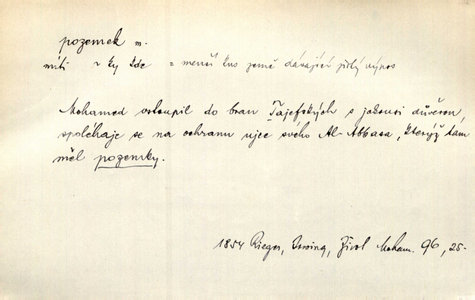 pozemek m.
míti ~ ky kde = menší kus země dávající jistý výnos
Mohamed vstoupil do bran Tajefských s jakousi důvěrou,
spoléhaje se na ochranu ujce svého Al-Abbasa, kterýž tam
měl pozemky.
1854 Rieger, Irwing, Život Moham. 96, 25.